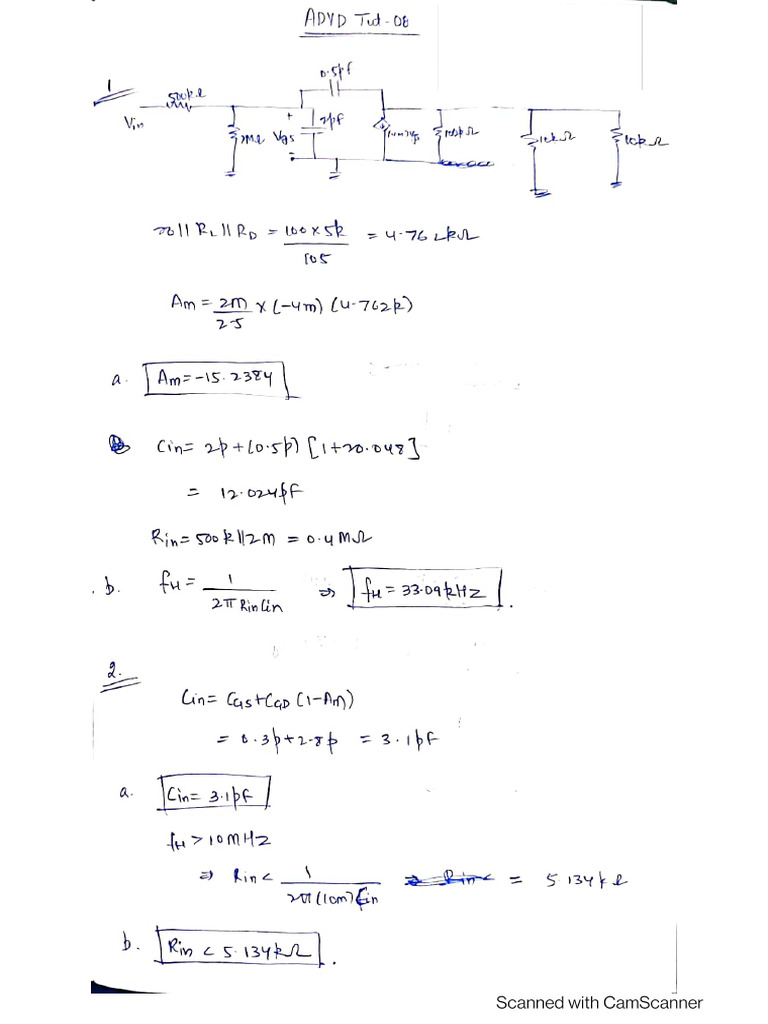 ADVD Tut-08
1
0.5pf
500kΩ
2pf
Vin
2MΩ
+
Vgs
-
100kΩ
10kΩ
10kΩ
r0 || RL || RD = 100 x 5k / 105 = 4.762kΩ
Am = 2M / 2.5 x (-4m) (4.762k)
a. Am = -15.2384
Cin = 2p + (0.5p) [1+20.048]
= 12.024pF
Rin = 500k || 2M = 0.4MΩ
b. fH = 1 / 2π Rin Cin ⇒ fH = 33.09kHz.
2.
Cin = CGS + CGD (1-Am)
= 0.3p + 2.8p = 3.1pF
a. Cin = 3.1pF
fH > 10MHz
⇒ Rin < 1 / 2π (10m) Cin = 5.134kΩ
b. Rin < 5.134kΩ.
Scanned with CamScanner